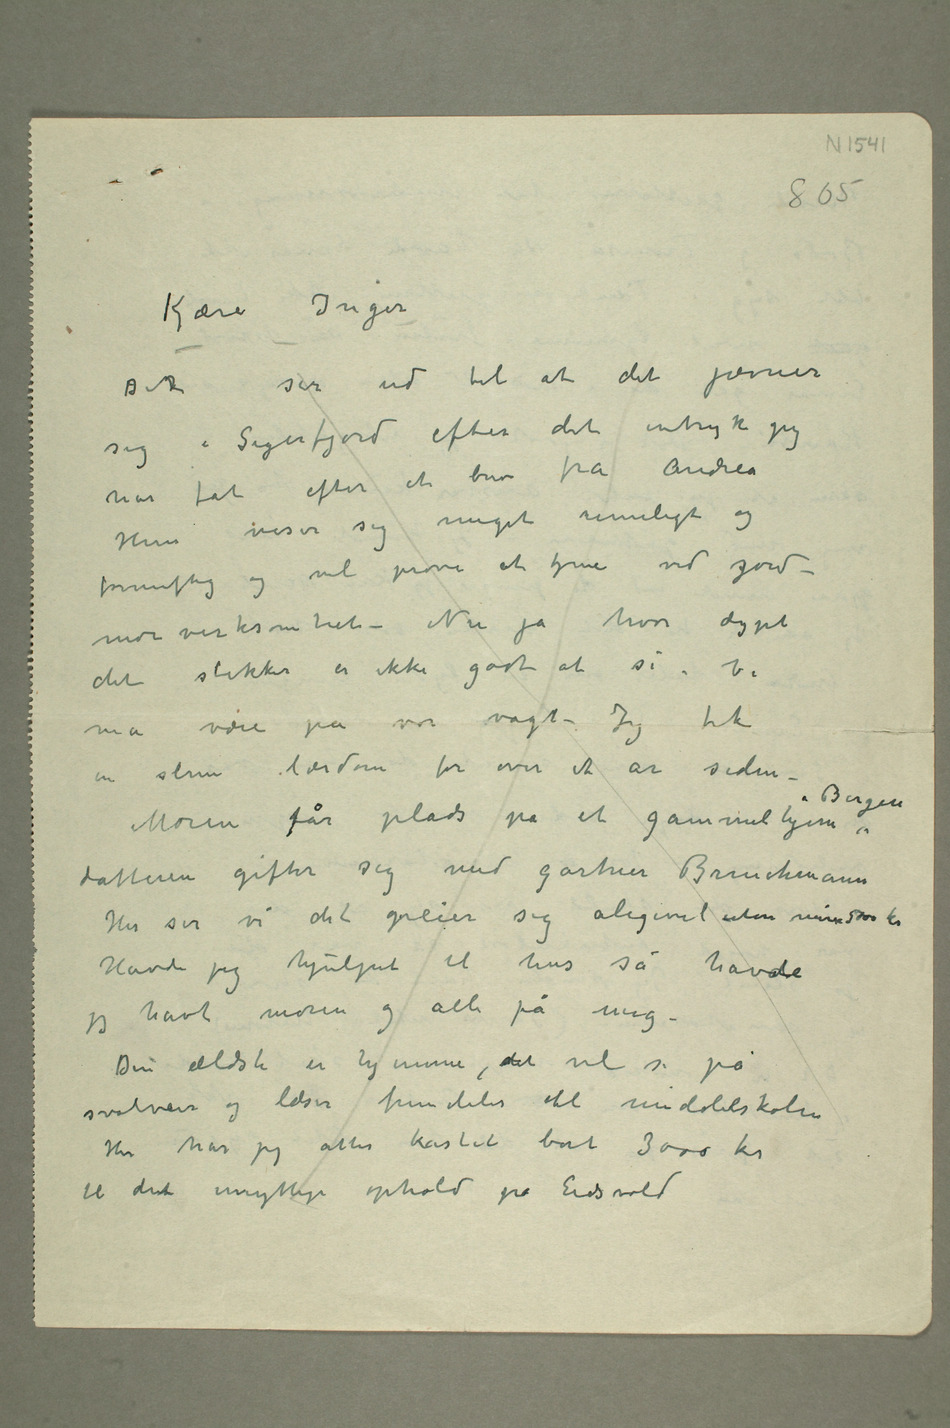 N 1541
805
Kjære Inger
Det ser ud til at det jævner
sig i Sigerfjord efter det intryk jeg
har fåt efter et brev fra Andrea
Hun viser sig meget rimeligt og
fornuftig og vil prøve at tjene ved jord-
mor virksomhet – Nu ja hvor dypt
det stikker er ikke godt at si. Vi
må være på vor vagt – Jeg fik
en slem lærdom for over et år siden –
Moren får plads på et gammelhjem i Bergen
datteren gifter sig med gartner Bruchmann
Her ser vi det greier sig aligevel uten mine 5000 kr
Havde jeg hjulpet til hus så havde
jeg havt moren og alle på mig –
Den ældste er hjemme, det vil si på
Svolvær og læser fremdeles til middelskolen
Her har jeg atter kastet bort 3000 kr
til det unyttige ophold på Eidsvold